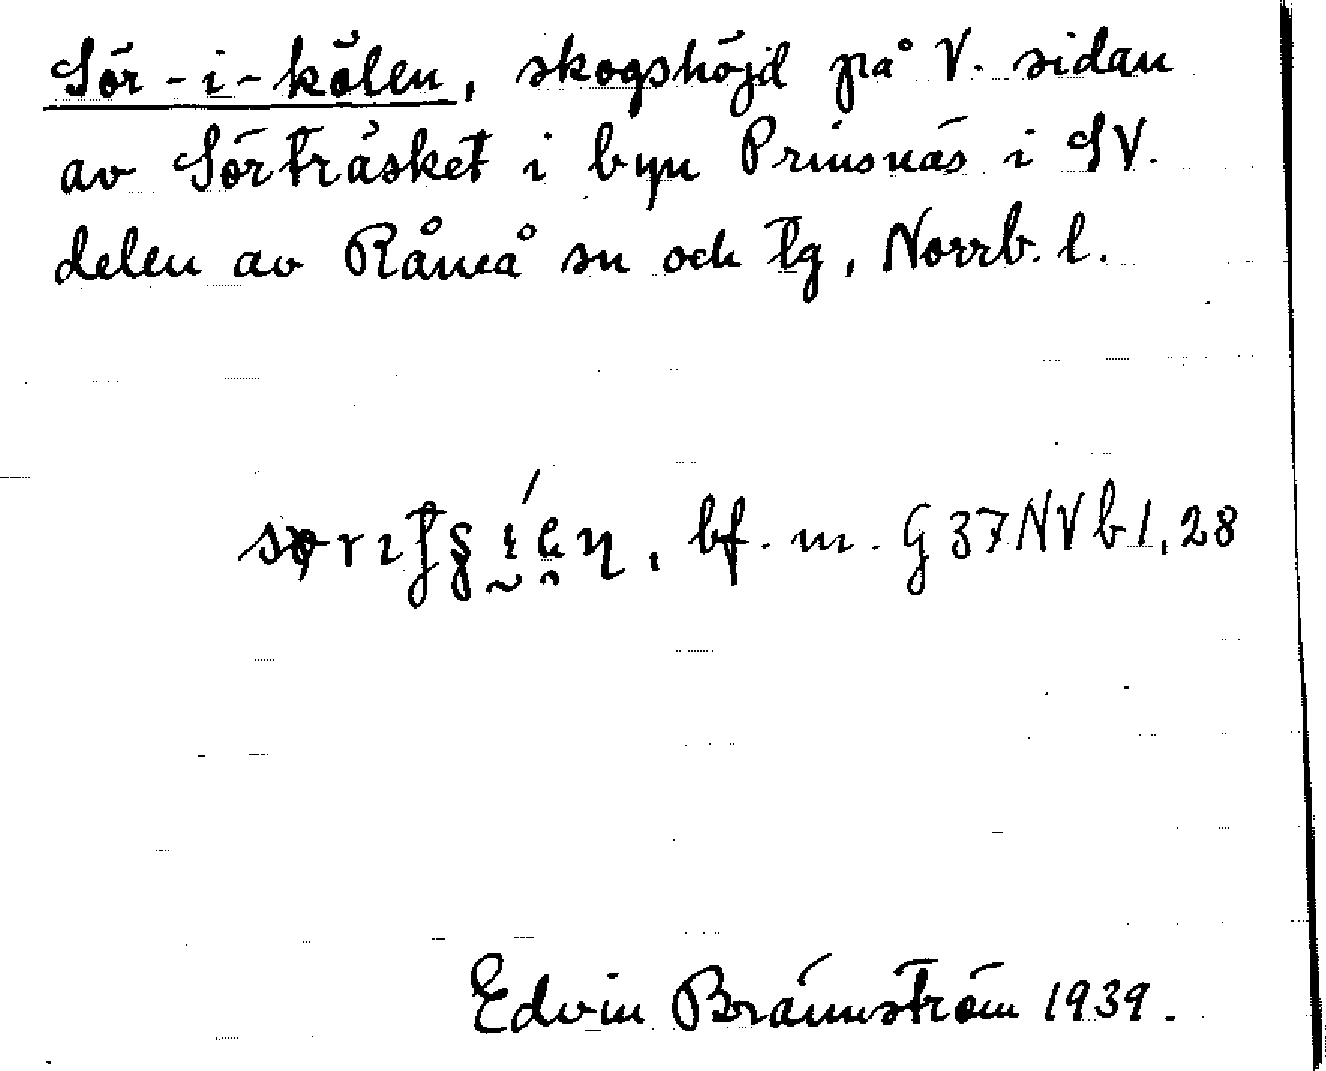 Sör-i-kölen, skogshöjd på V. sidan
av Sörträsket i byn Prinsnäs i SV.
delen av Råneå sn och tg, Norrb. l.
bf. m. G 37 NVb 1, 28
Edvin Brännström 1939.